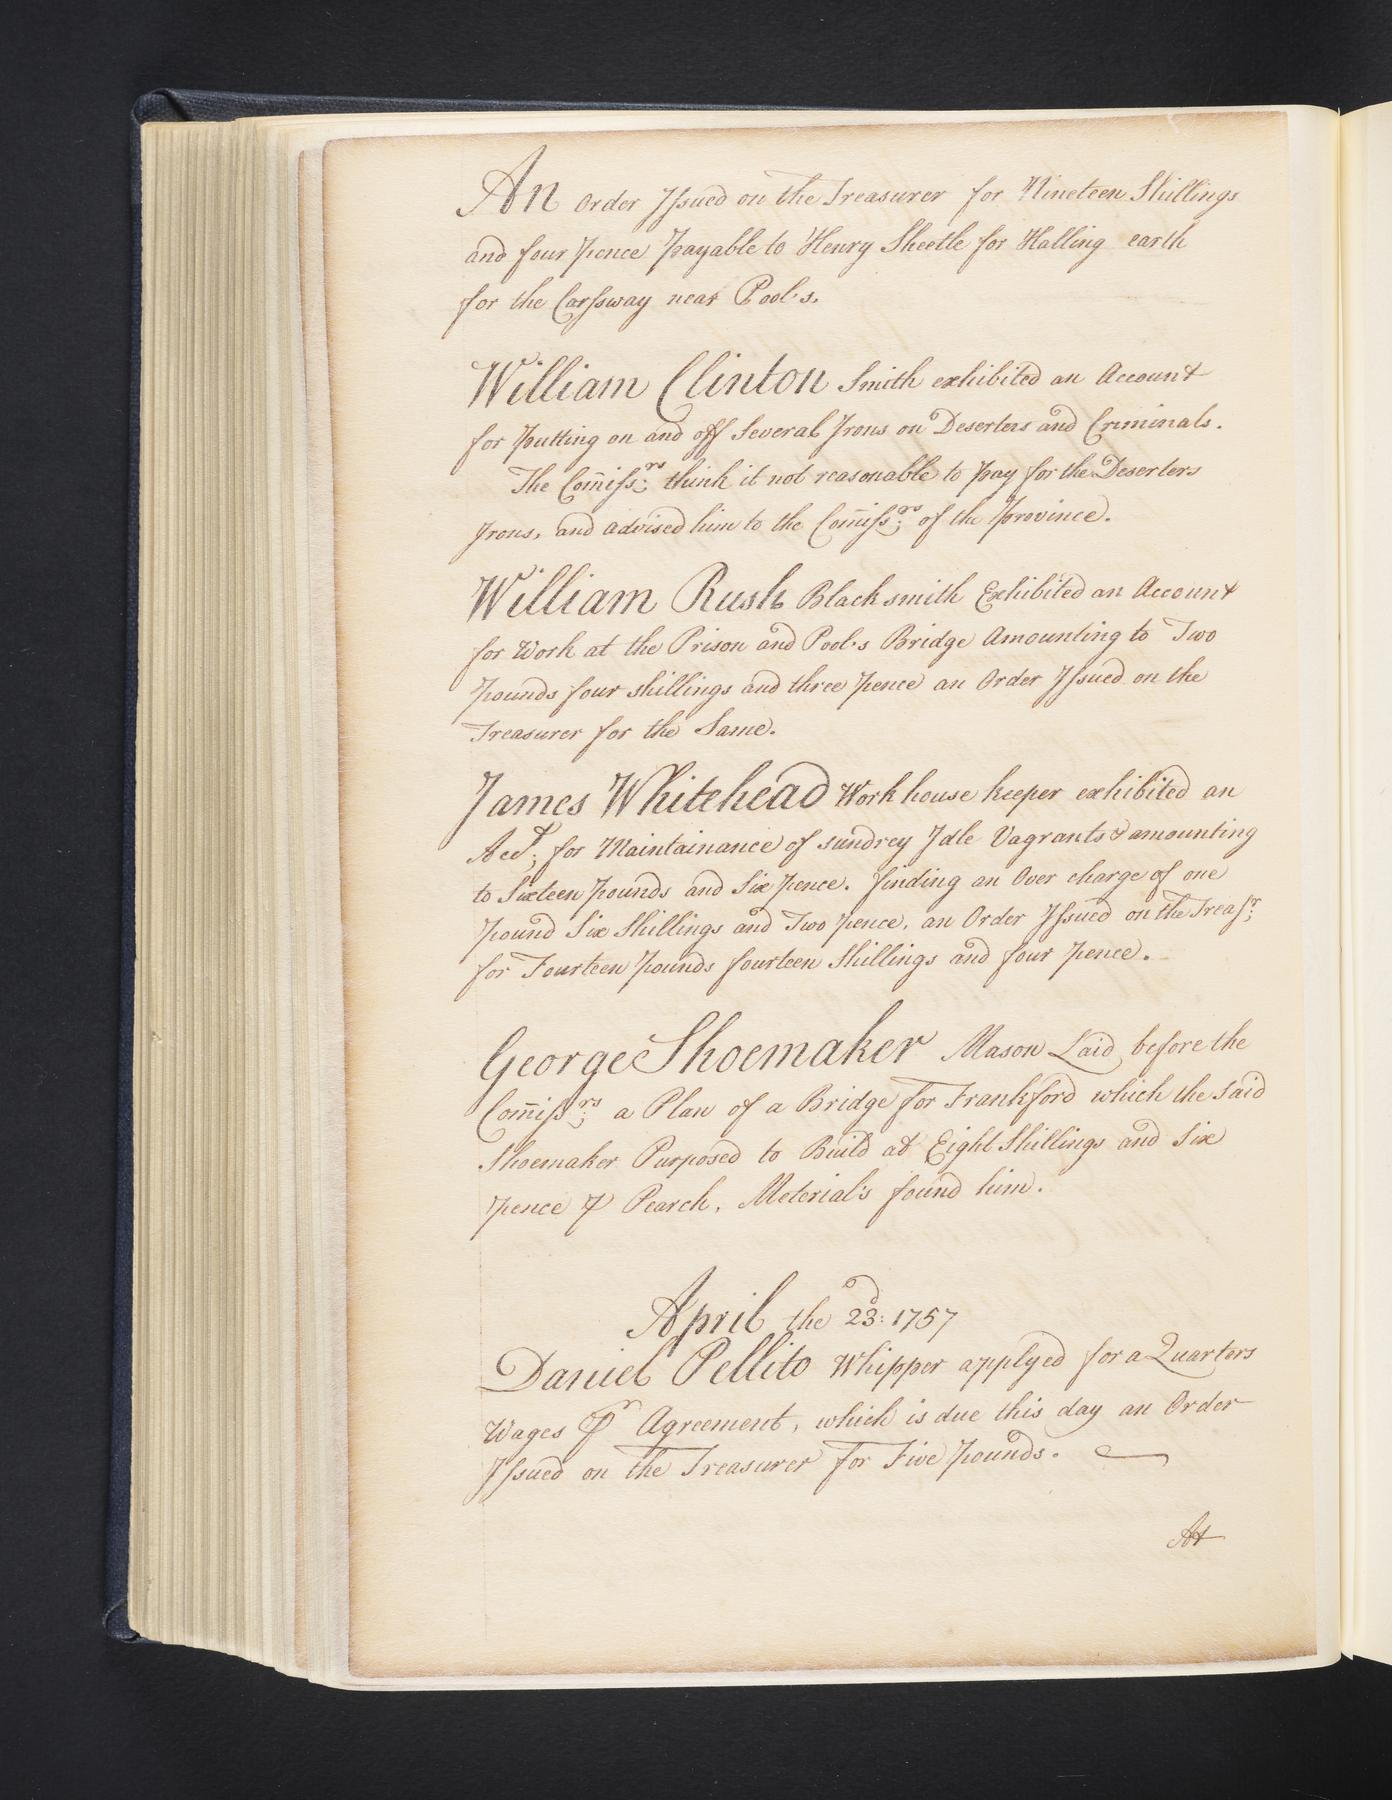 An Order Issued on the Treasurer for Nineteen Shillings
and four pence payable to Henry Sheetle for Halling earth
for the Carssway near Pool's.
William Clinton Smith exhibited an Account
for putting on and off Several Irons on Deserters and Criminals.
The Com̅iss:rs think it not reasonable to pay for the Deserters
Irons, and advised him to the Com̅iss:rs of the province.
William Rush Blacksmith Exhibited an Account
for Work at the Prison and Pool's Bridge Amounting to Two
pounds four shillings and three pence an Order Issued on the
Treasurer for the Same.
James Whitehead Workhouse keeper exhibited an
Acct; for Maintainance of sundrey Idle Vagrants & amounting
to Sixteen pounds and Six pence. finding an Over charge of one
pound Six Shillings and Two pence, an Order Issued on the Treas:r
for Fourteen pounds fourteen Shillings and four pence.
George Shoemaker Mason Laid before the
Com̅iss:rs a Plan of a Bridge for Frankford which the said
Shoemaker Purposed to Build at Eight Shillings and Six
pence ⅌ Pearch, Meterial's found him.
April the 23:d 1757
Daniel Pellito Whipper applyed for a Quarters
Wages ⅌r Agreement, which is due this day an Order
Issued on the Treasurer for Five pounds.
At